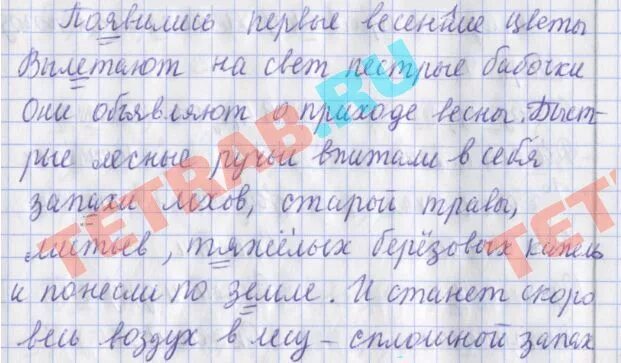 Появились первые весенние цветы
Вылетают на свет пестрые бабочки
Они объявляют о приходе весны. Быст-
рые лесные ручьи впитали в себя
запахи мхов, старой травы,
листьев, тяжёлых берёзовых капель
и понесли по земле. И станет скоро
весь воздух в лесу – сплошной запах
TETRAB.RU
TET